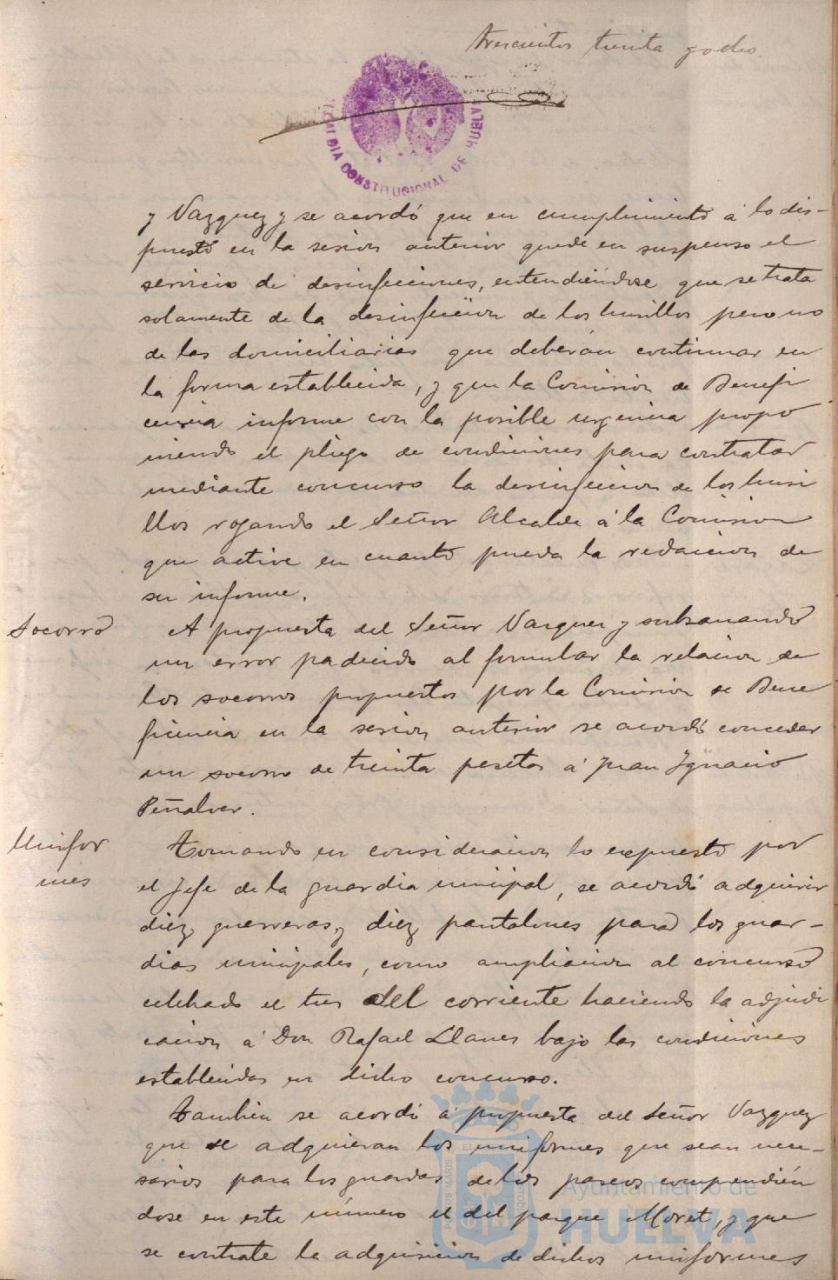 Trescientos treinta y ocho
ALCALDIA CONSTITUCIONAL DE HUELVA
y Vazquez y se acordó que en cumplimiento á lo dis-
puesto en la sesion anterior quede en suspenso el
servicio de desinfecciones, entendiéndose que se trata
solamente de la desinfección de los husillos pero no
de las domiciliarias que deberán continuar en
la forma establecida, y que la Comision de Benefi
cencia informe con la posible urgencia propo
niendo el pliego de condiciones para contratar
mediante concurso la desinfeccion de los husi
llos rogando el Señor Alcalde á la Comision
que active en cuanto pueda la redaccion de
su informe.
Socorro
A propuesta del Señor Vazquez y subsanando
un error padecido al formular la relacion de
los socorros propuestos por la Comision de Bene
ficencia en la sesion anterior se acordó conceder
un socorro de treinta pesetas á Juan Ignacio
Peñalver.
Unifor
mes
Tomando en consideracion lo expuesto por
el Jefe de la guardia municipal, se acordó adquirir
diez guerreras y diez pantalones para los guar-
dias municipales, como ampliacion al concurso
celebrado el tres del corriente haciendo la adjudi
cacion á Don Rafael Llanes bajo las condiciones
establecidas en dicho concurso.
Tambien se acordó á propuesta del Señor Vazquez
que se adquieran los uniformes que sean nece-
sarios para los guardas de los paseos comprendién
dose en este número el del parque Moret, y que
se contrate la adquisicion de dichos uniformes
Ayuntamiento de
HUELVA